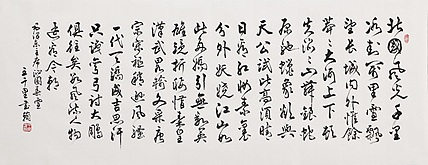 北國風光千里
冰封萬里雪飄
望長城內外惟餘
莽莽大河上下頓
失滔滔山舞銀蛇
原馳蠟象欲與
天公試比高須晴
日看紅妝素裹
分外妖嬈江山如
此多嬌引無數英
雄競折腰惜秦皇
漢武略輸文采唐
宗宋祖稍遜風騷
一代天驕成吉思汗
只識彎弓射大鵰
俱往矣數風流人物
還看今朝
毛澤東主席沁園春雪